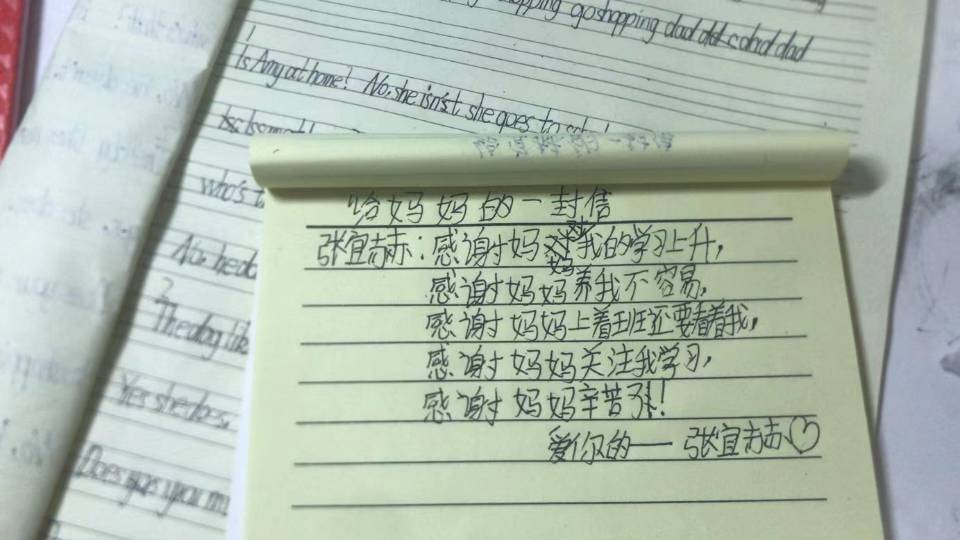 shopping go shopping dad dad dad dad
Is Amy at home? No, she isn'st she goes to
who's
No, he do
2
The dog like
Yes she does,
Does you
给妈妈的一封信
张宜喆：感谢妈妈对我的学习上升，
感谢妈妈养我不容易，
感谢妈妈上着班还要看着我，
感谢妈妈关注我学习，
感谢妈妈辛苦了！
爱你的——张宜喆♡